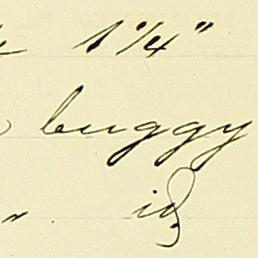 1 1/4"
buggy
" id